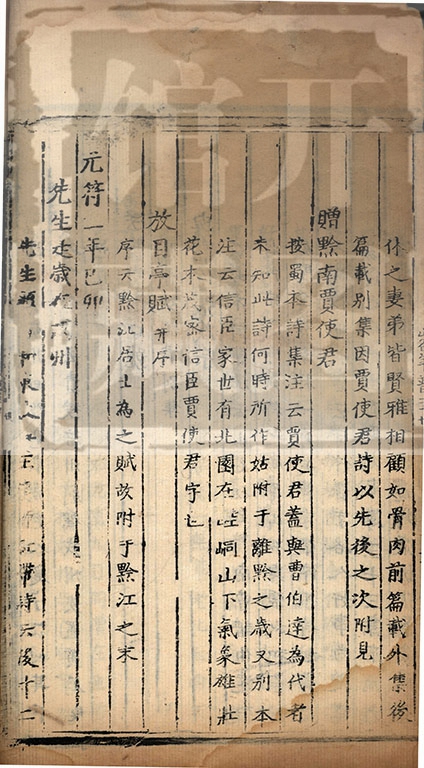 休之妻弟皆賢雅相顧如骨肉前篇載外集後
篇載別集因賈使君詩以先後之次附見
贈黔南賈使君
按蜀本詩集注云賈使君蓋與曹伯達為代者
未知此詩何時所作姑附于離黔之歲又別本
注云信臣家世有北園在 峒山下氣象雄壯
花木茂密信臣賈使君字也
放目亭賦并序
序云黔江居士為之賦故附于黔江之末
元符 年己卯
先生是歲在戎州
先生 詩云後十二